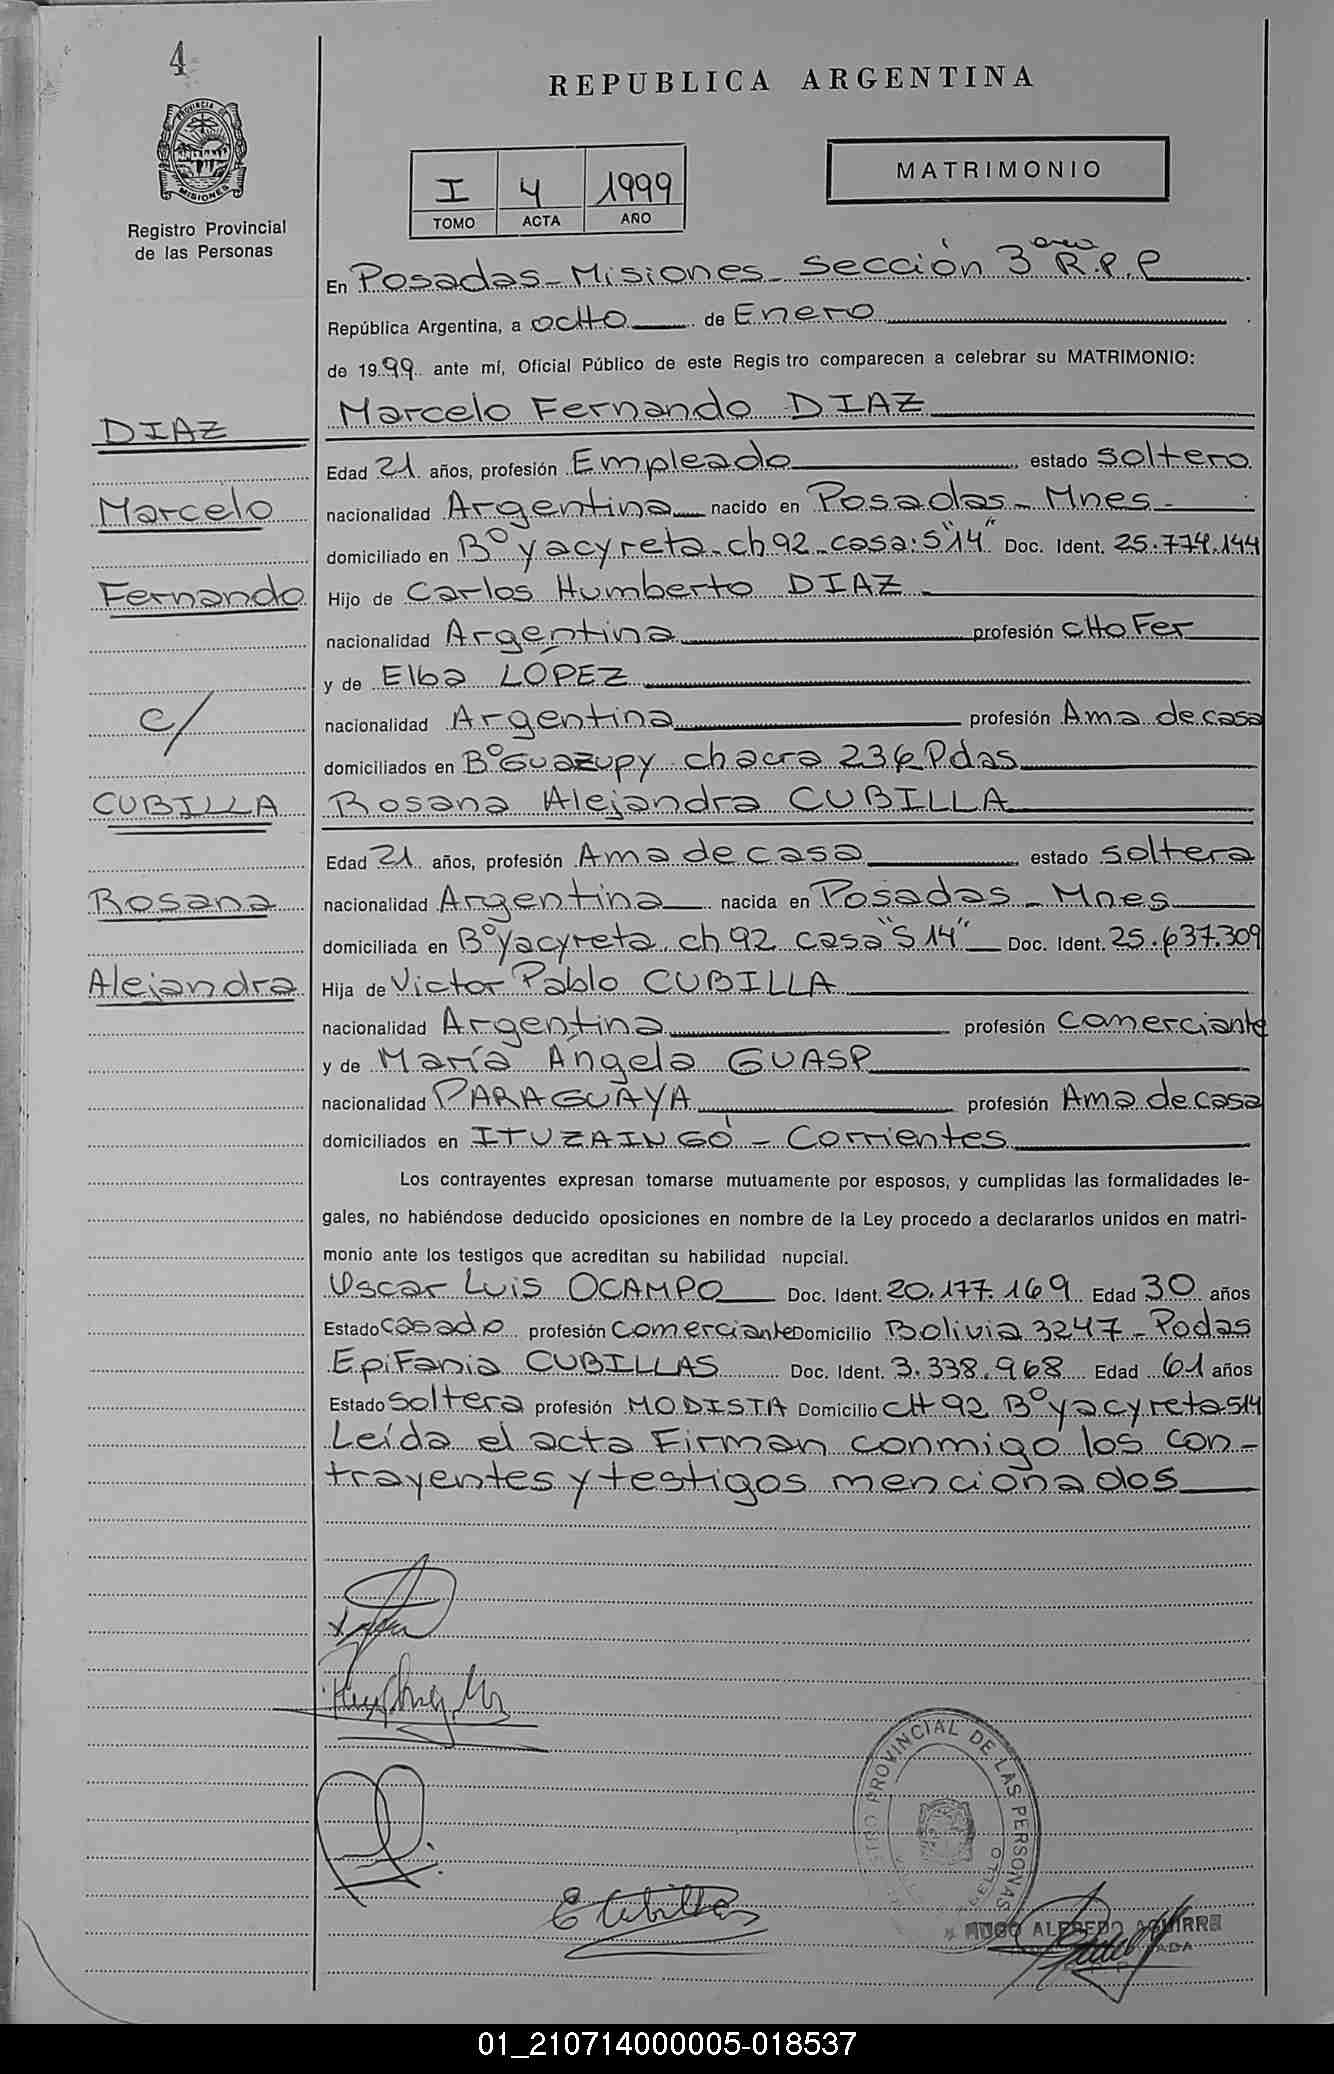 4
PROVINCIA DE
MISIONES
Registro Provincial
de las Personas
REPUBLICA ARGENTINA
I 4 1999
TOMO ACTA AÑO
MATRIMONIO
En Posadas - Misiones - Sección 3era R.P.P
República Argentina, a ocho de Enero
de 1999 ante mí, Oficial Público de este Registro comparecen a celebrar su MATRIMONIO:
DIAZ
Marcelo
Fernando
c/
CUBILLA
Rosana
Alejandra
Marcelo Fernando DIAZ
Edad 21 años, profesión Empleado estado soltero
nacionalidad Argentina nacido en Posadas - Mnes -
domiciliado en Bº yacyreta - ch 92 - casa: S"14" Doc. Ident. 25.774.144
Hijo de Carlos Humberto DIAZ
nacionalidad Argentina profesión chofer
y de Elba LÓPEZ
nacionalidad Argentina profesión Ama de casa
domiciliados en Bº Guazupy chacra 236 Pdas
Rosana Alejandra CUBILLA
Edad 21 años, profesión Ama de casa estado soltera
nacionalidad Argentina nacida en Posadas - Mnes
domiciliada en Bº yacyreta ch 92 casa "S 14" Doc. Ident. 25.637.309
Hija de Victor Pablo CUBILLA
nacionalidad Argentina profesión comerciante
y de María Ángela GUASP
nacionalidad PARAGUAYA profesión Ama de casa
domiciliados en ITUZAINGÓ - Corrientes
Los contrayentes expresan tomarse mutuamente por esposos, y cumplidas las formalidades le-
gales, no habiéndose deducido oposiciones en nombre de la Ley procedo a declararlos unidos en matri-
monio ante los testigos que acreditan su habilidad nupcial.
Oscar Luis OCAMPO Doc. Ident. 20.177.169 Edad 30 años
Estado casado profesión comerciante Domicilio Bolivia 3247 - Podas
Epifania CUBILLAS Doc. Ident. 3.338.968 Edad 61 años
Estado soltera profesión MODISTA Domicilio CH 92 Bº yacyreta S14
Leída el acta Firman conmigo los con-
trayentes y testigos mencionados
E Cubillas
PROVINCIAL DE LAS PERSONAS
HUGO ALFREDO AGUIRRE
01_210714000005-018537